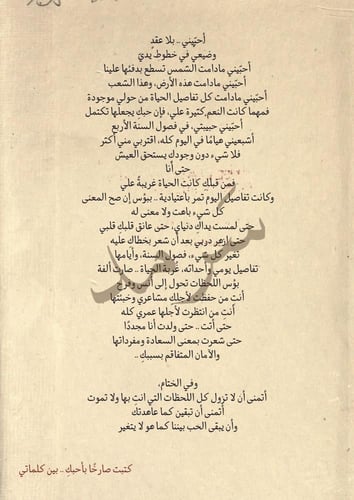 أحبّيني .. بلا عقدٍ
وضيعي في خطوط يديّ
أحبّيني مادامت الشمس تسطع بدفئها علينا
أحبّيني مادامت هذه الأرض، وهذا الشعب
أحبّيني مادامت كل تفاصيل الحياة من حولي موجودة
فمهما كانت النعم كثيرة علي، فإن حبك يجعلها تكتمل
أحبّيني حبيبتي، في فصول السنة الأربع
أشبعيني هيامًا في اليوم كله، اقتربي مني أكثر
فلا شيء دون وجودك يستحق العيش
حتى أنا
فمن قبلكِ كانت الحياة غريبةً علي
وكانت تفاصيل اليوم تمر باعتيادية .. ببؤس إن صح المعنى
كل شيء باهت ولا معنى له
حتى لمست يداكِ دنياي، حتى عانق قلبكِ قلبي
حتى ازهر دربي بعد أن شعر بخطاكِ عليه
تغير كل شيء، فصول السنة، وأيامها
تفاصيل يومي وأحداثه، غربة الحياة .. صارت ألفة
بؤس اللحظات تحول إلى أنس وفرح
أنتِ من حفظت لأجلكِ مشاعري وخبئتها
أنتِ من انتظرت لأجلها عمري كله
حتى أتت .. حتى ولدت أنا مجددًا
حتى شعرت بمعنى السعادة ومفرداتها
والأمان المتفاقم بسببكِ ..
وفي الختام،
أتمنى أن لا تزول كل اللحظات التي انتِ بها ولا تموت
أتمنى أن تبقين كما عاهدتك
وأن يبقى الحب بيننا كما هو لا يتغير
كتبت صارخًا بأحبكِ .. بين كلماتي